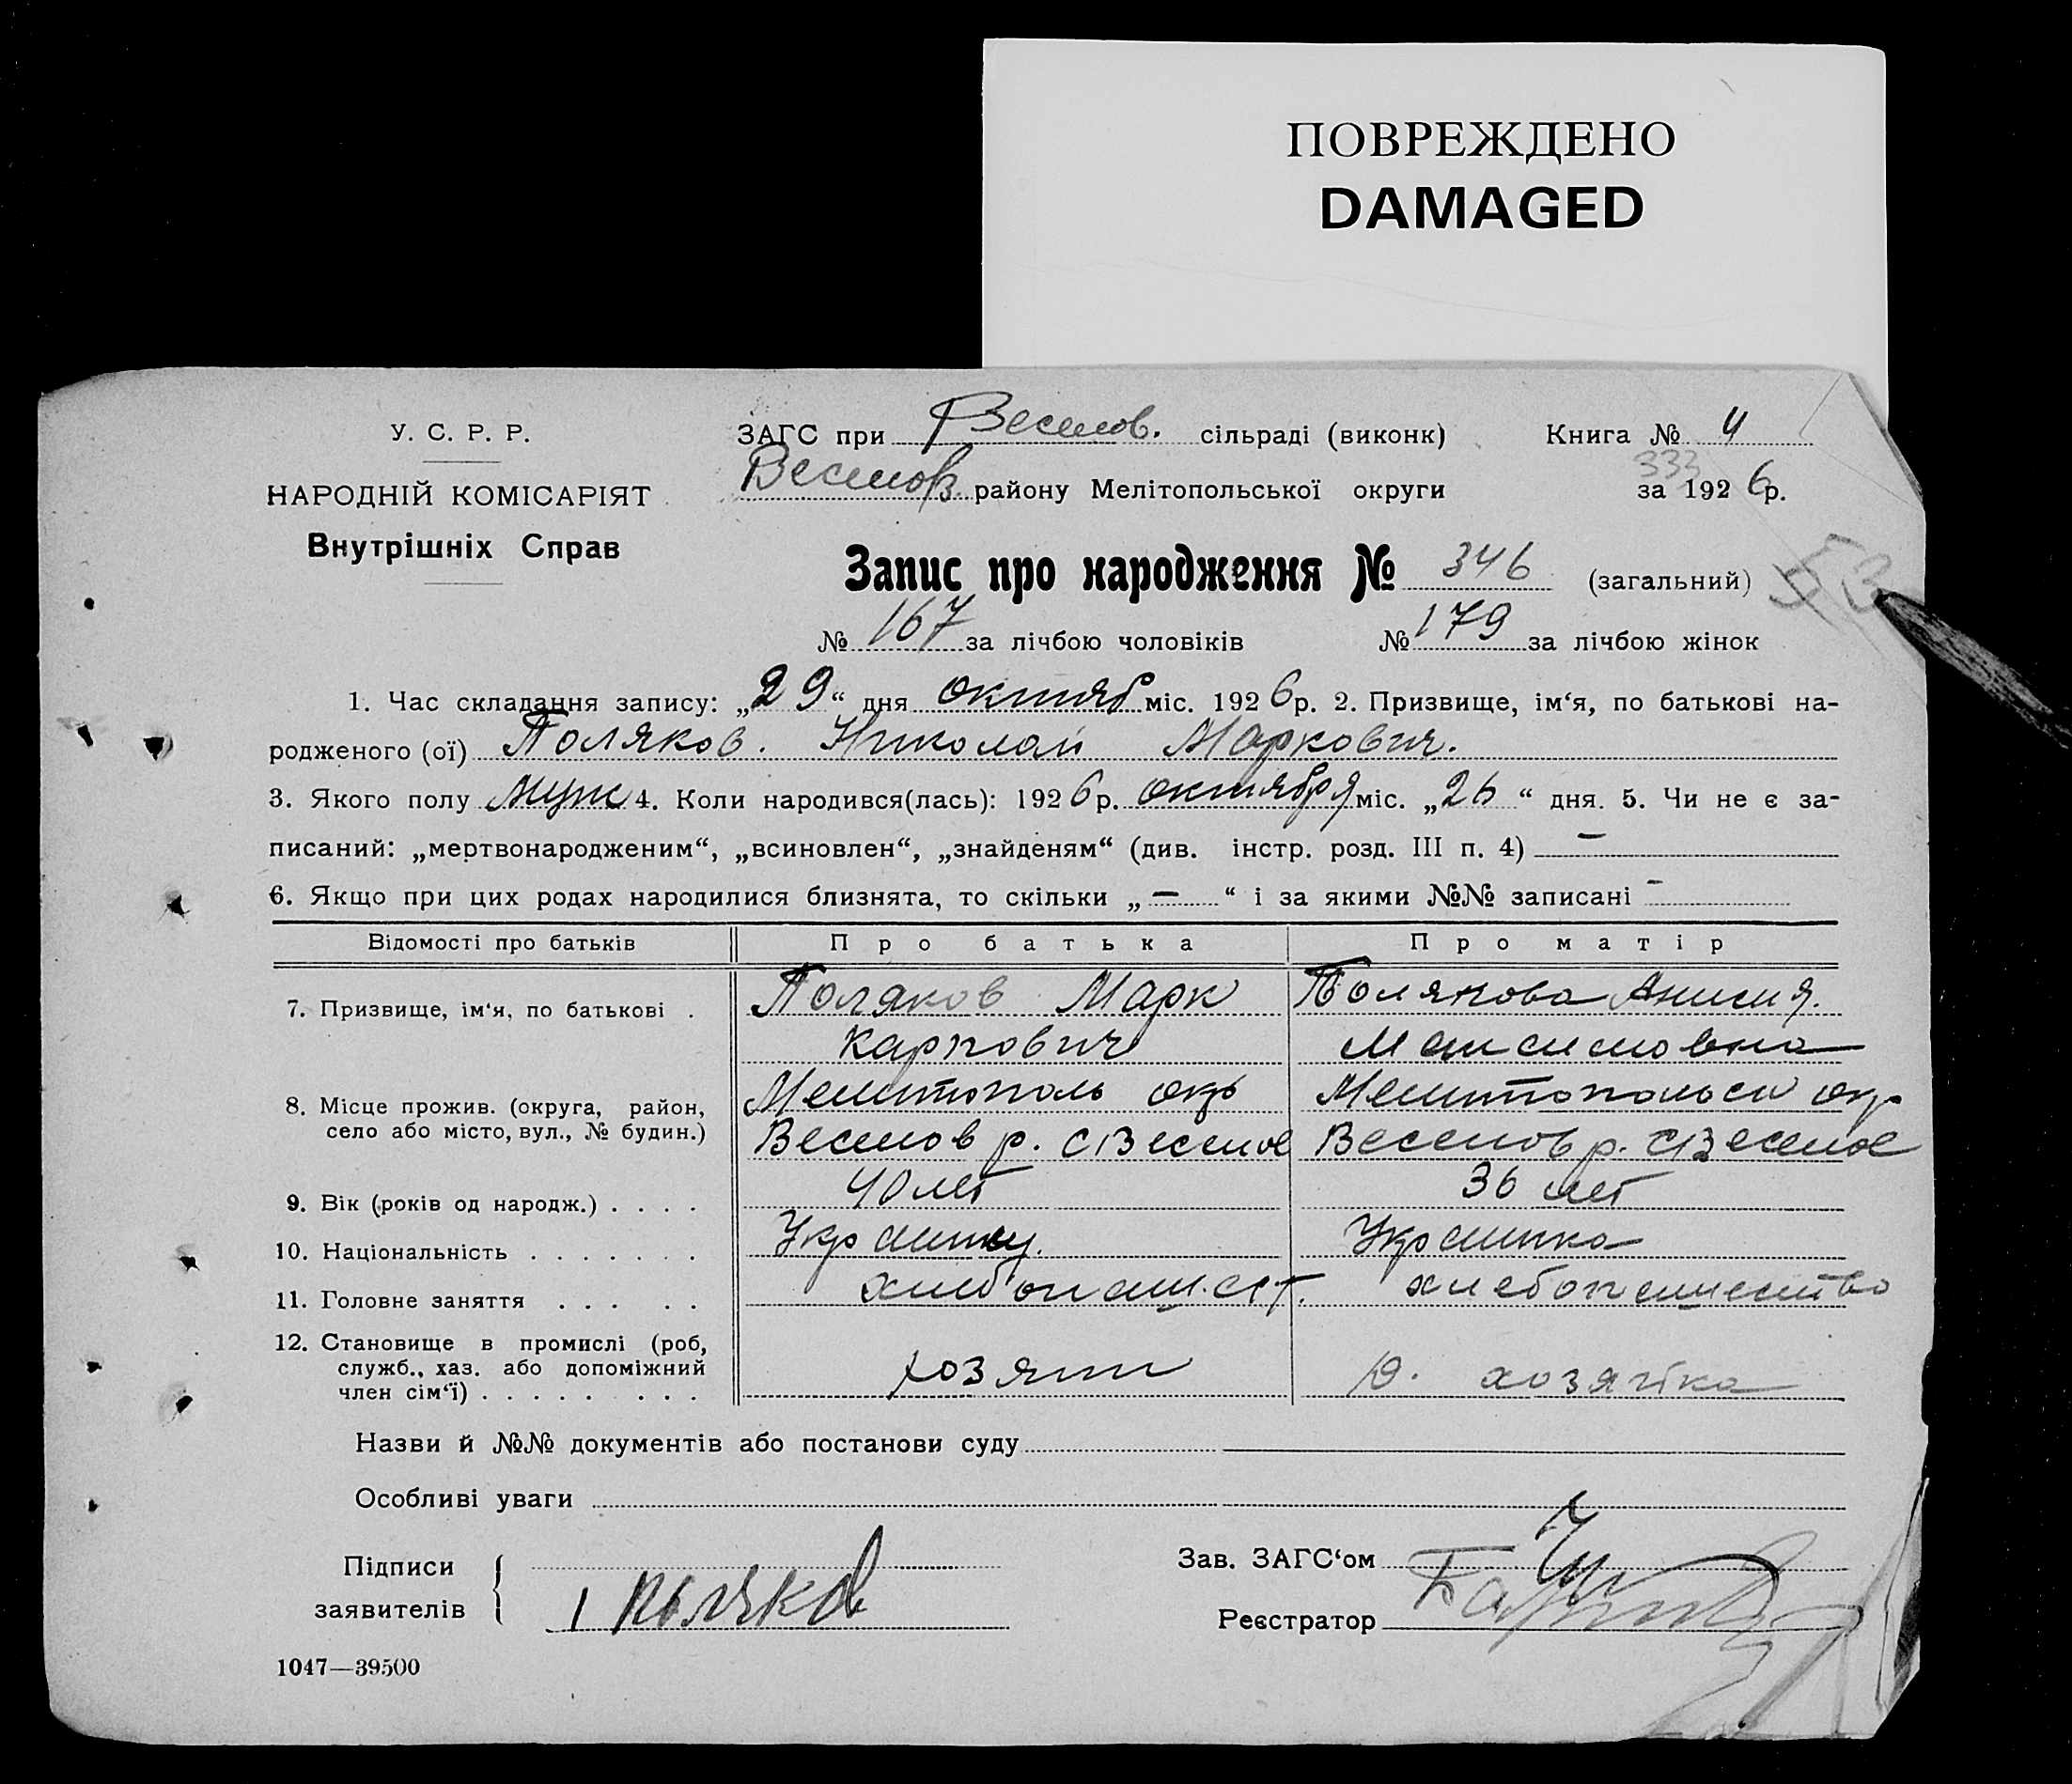 ПОВРЕЖДЕНО
DAMAGED
У. С. Р. Р.
НАРОДНІЙ КОМІСАРІЯТ
Внутрішніх Справ
ЗАГС при Веселов. сільраді (виконк) Книга № 4
333
Веселов. району Мелітопольської округи за 1926р.
Запис про народження № 346 (загальний) 53
№ 167 за лічбою чоловіків № 179 за лічбою жінок
1. Час складання запису: „29“ дня октяб міс. 1926р. 2. Призвище, ім‘я, по батькові на-
родженого (ої) Поляков. Николай Маркович.
3. Якого полу Муж 4. Коли народився(лась): 1926р. октября міс. „26“ дня. 5. Чи не є за-
писаний: „мертвонародженим“, „всиновлен“, „знайденям“ (див. інстр. розд. III п. 4) —
6. Якщо при цих родах народилися близнята, то скільки „—“ і за якими №№ записані -
Відомості про батьків Про батька Про матір
7. Призвище, ім‘я, по батькові . Поляков Марк Полякова Анисия.
Карпович Максимовна
8. Місце прожив. (округа, район, Мелитополь окр Мелитопольск окр
село або місто, вул., № будин.) Веселов р. с Веселое Веселов р. с Веселое
9. Вік (років од народж.) . . . . 40 лет 36 лет
10. Національність . . . . . . . Украинец. Украинка
11. Головне заняття . . . . . хлебопаш.ест. хлебопашество
12. Становище в промислі (роб,
служб., хаз. або допоміжний хозяин д. хозяйка
член сім‘ї) . . . . . . . .
Назви й №№ документів або постанови суду
Особливі уваги
Підписи Зав. ЗАГС‘ом
заявителів Поляков Реєстратор
1047—39500